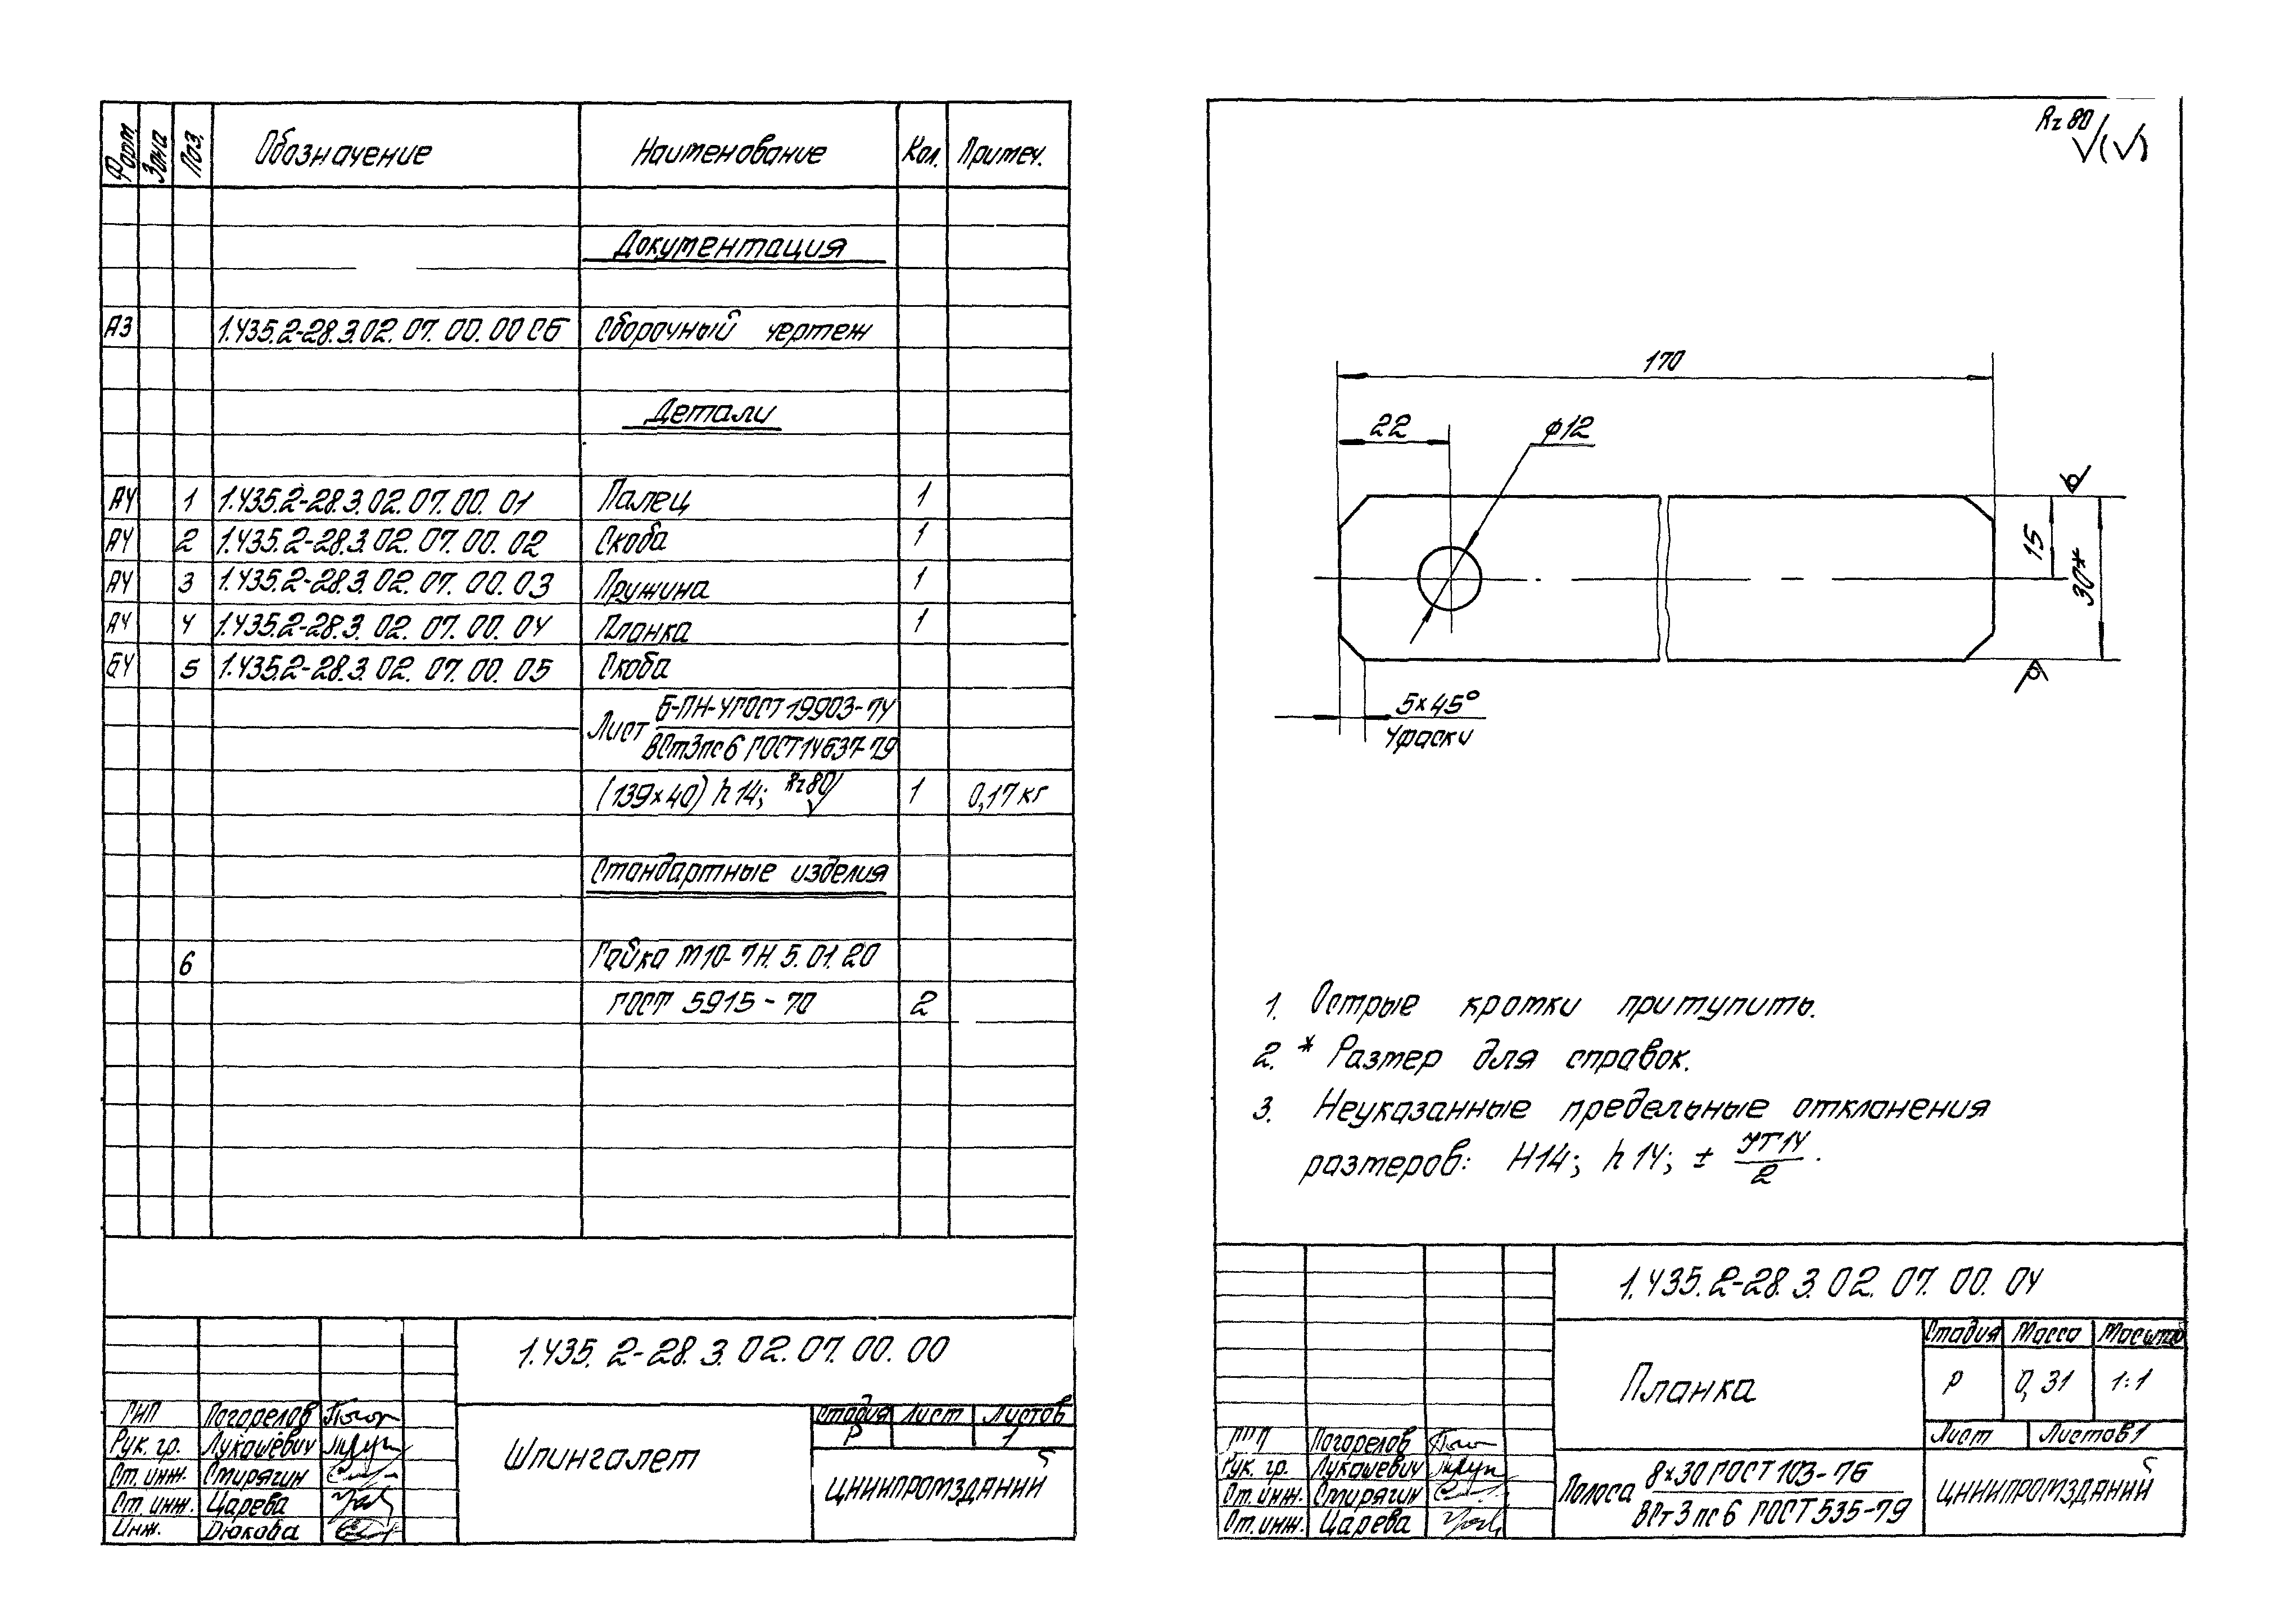 Форм. Зона Поз. Обозначение Наименование Кол. Примеч.
Документация
А3 1.435.2-28.3.02.07.00.00 СБ Сборочный чертеж
Детали
А4 1 1.435.2-28.3.02.07.00.01 Палец 1
А4 2 1.435.2-28.3.02.07.00.02 Скоба 1
А4 3 1.435.2-28.3.02.07.00.03 Пружина 1
А4 4 1.435.2-28.3.02.07.00.04 Планка 1
БЧ 5 1.435.2-28.3.02.07.00.05 Скоба
Б-ПН-4 ГОСТ 19903-74
Лист
ВСт3пс6 ГОСТ 14637-79
(139×40) h14; Rz80 1 0,17 кг
Стандартные изделия
6 Гайка М10-7Н.5.01.20
ГОСТ 5915-70 2
1.435.2-28.3.02.07.00.00
Шпингалет
Стадия Лист Листов
Р 1
ЦНИИПРОМЗДАНИЙ
ГИП Погорелов
Рук. гр. Лукашевич
Ст. инж. Стирягин
Ст. инж. Царева
Инж. Дюкова
Rz 80 (√)
170
22
ϕ12
15
30*
5×45°
4 фаски
1. Острые кромки притупить.
2. * Размер для справок.
3. Неуказанные предельные отклонения
размеров: H14; h14; ± IT14/2.
1.435.2-28.3.02.07.00.04
Планка
Стадия Масса Масштаб
Р 0,31 1:1
Лист Листов 1
Полоса 8×30 ГОСТ 103-76
ВСт3пс6 ГОСТ 535-79
ЦНИИПРОМЗДАНИЙ
ГИП Погорелов
Рук. гр. Лукашевич
Ст. инж. Стирягин
Ст. инж. Царева